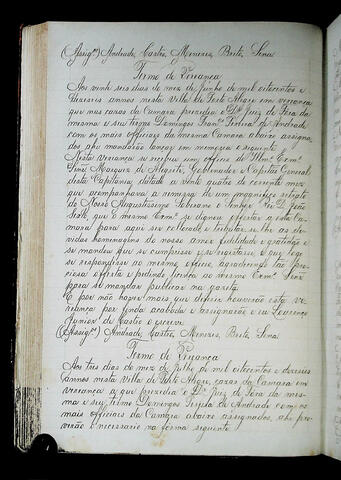 (Assig.os) Andrade, Castro, Menezes, Brito, Sena
Termo de Vereança
Aos vinte seis dias do mez de Junho de mil oitocentos e
dezeseis annos nesta Villa de Porto Alegre em vereança
que nas cazas da Camara prezidio o Dr. Juiz de Fora da
mesma e seu termo Domingos Franc.co Pereira de Andrade
com os mais officiaes da mesma Camara abaixo assigna-
dos ahi mandarão lançar em memoria o seguinte
Nesta vereança se recebeu um officio do Illmo. Exmo.
Snr. Marquez de Alegrete, Governador e Capitão General
desta Capitania datado a vinte quatro de corrente mez
que acompanhava a remessa de um magnifico retrato
de Nosso Augustissimo Soberano o Senhor Rei D. João
Sexto, que o mesmo Exmo. Sr. se dignou offertar a esta Ca-
mara para aqui ser collocado e tributar-se-lhe as de-
vidas homenagens do nosso amor fidelidade e gratidão e
se mandou que se cumprisse e se registasse e que logo
se respondesse ao mesmo officio, agradecendo tão pre-
ciosa offerta e pedindo licença ao mesmo Exmo. Snr.
para se mandar publicar na gazeta.
E por não haver mais que deferir houverão esta ve-
reança por finda acabada e assignarão e eu Lourenço
Junior de Castro o escrevi.
(Assig.os) Andrade, Castro, Menezes, Brito, Sena.
Termo de Vereança
Aos tres dias do mez de Julho de mil oitocentos e dezeseis
annos nesta Villa de Porto Alegre, cazas da Camara em
vereança a que prezidio o Dr. Juiz de Fora da mes-
ma e seu termo Domingos Pereira de Andrade com os
mais officiaes da Camara abaixo assignados, ahi pro-
virão o necessario na forma seguinte